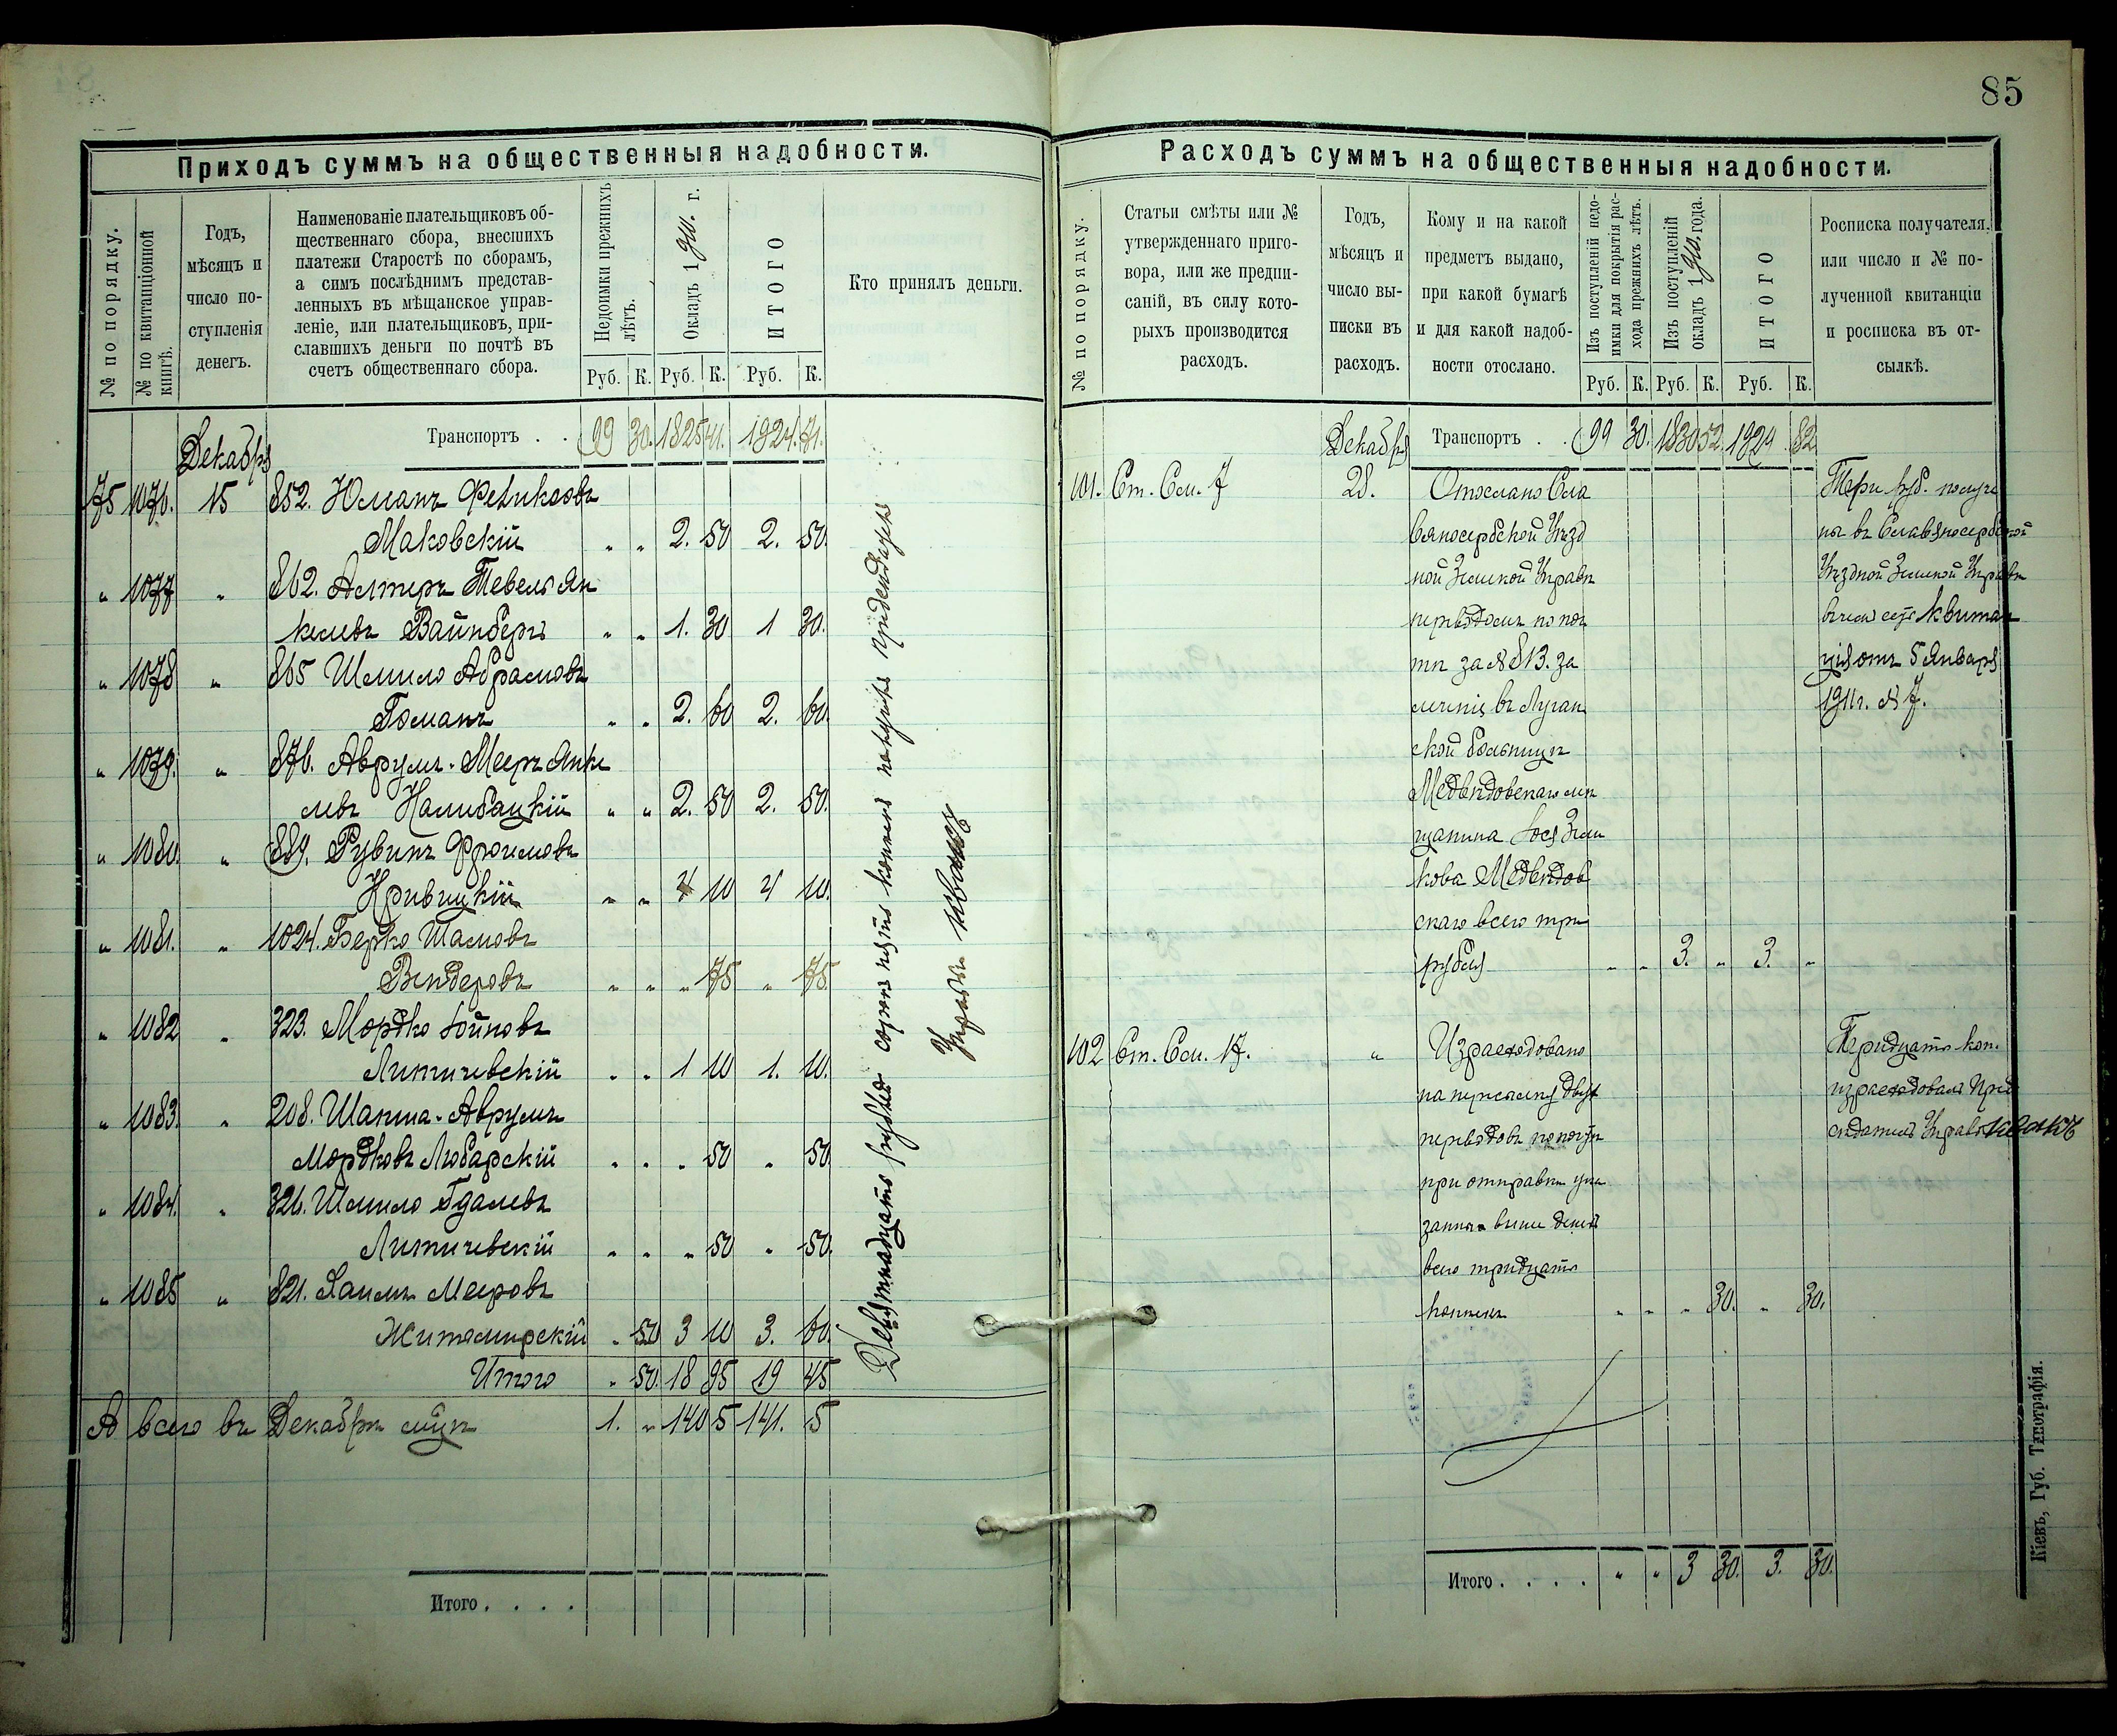 85
Приходъ суммъ на общественныя надобности.
№ по порядку.
№ по квитанціонной
книгѣ.
Годъ,
мѣсяцъ и
число по-
ступленія
денегъ.
Наименованіе плательщиковъ об-
щественнаго сбора, внесшихъ
платежи Старостѣ по сборамъ,
а симъ послѣднимъ представ-
ленныхъ въ мѣщанское управ-
леніе, или плательщиковъ, при-
славшихъ деньги по почтѣ въ
счетъ общественнаго сбора.
Недоимки прежнихъ
лѣтъ.
Окладъ 1910. г.
ИТОГО
Кто принялъ деньги.
Руб. К. Руб. К. Руб. К.
Декабрь
Транспортъ . . 99 30. 1825 41. 1924. 71.
75 1076. 15 852. Юманъ Феликсовъ
Маковскій " " 2. 50 2. 50.
" 1077 " 862. Алтеръ Тевель Ян
келевъ Вайнбергъ " " 1. 30 1 30.
" 1078 " 865 Шмило Абрамовъ
Гоманъ " " 2. 60 2. 60.
" 1079. " 876. Аврумъ-Мееръ Янке
левъ Налибацкій " " 2. 50 2. 50.
" 1080. " 889. Рувинъ Фроимовъ
Кривицкій " " 4 10 4 10.
" 1081. " 1024. Берко Шамовъ
Вендеровъ " " " 75 " 75.
" 1082 " 323. Мордко Іойновъ
Литичевскій " " 1 10 1. 10.
" 1083. " 208. Шапша-Аврумъ
Мордковъ Любарскій " " " 50 " 50.
" 1084. " 326. Шмило Гдалевъ
Литичевскій " " " 50 " 50.
" 1085 " 821. Хаимъ Мееровъ
Житомирскій " 50 3 10 3. 60.
Итого " 50. 18 95 19 45
А всего въ Декабрѣ м-цѣ 1. " 140 5 141. 5
Девятнадцать рублей сорокъ пять копѣекъ получилъ Предсѣдатель
Управы
Итого . . . .
Расходъ суммъ на общественныя надобности.
№ по порядку.
Статьи смѣты или №
утвержденнаго приго-
вора, или же предпи-
саній, въ силу кото-
рыхъ производится
расходъ.
Годъ,
мѣсяцъ и
число вы-
писки въ
расходъ.
Кому и на какой
предметъ выдано,
при какой бумагѣ
и для какой надоб-
ности отослано.
Изъ поступленій недо-
имки для покрытія рас-
хода прежнихъ лѣтъ.
Изъ поступленій
окладъ 1910. года.
ИТОГО
Росписка получателя,
или число и № по-
лученной квитанціи
и росписка въ от-
сылкѣ.
Руб. К. Руб. К. Руб. К.
Декабря Транспортъ . . 99 30. 1830 52. 1929 82
101. Ст. См. 7 28. Отослано Сла
вяносербской Уѣзд
ной Земской Управѣ
переводомъ по поч
тѣ за № 813. за
леченіе въ Луган
ской больницѣ
Медвѣдовскаго мѣ
щанина Іося Зель
кова Медвѣдов
скаго всего три
рубля " " 3. " 3. "
Три руб. получе
ны въ Славяносербской
Уѣздной Земской Управѣ
въ чемъ есть квитан
ція отъ 5 Января
1911 г. № 7.
102 Ст. См. 17. " Израсходовано
на пересылку двухъ
переводовъ по почтѣ
при отправкѣ ука
занныхъ выше денегъ
всего тридцать
копѣекъ " " " 30. " 30.
Тридцать коп.
израсходовалъ Пред
сѣдатель Управы
Итого . . . . " " 3 30. 3. 30.
Кіевъ, Губ. Типографія.